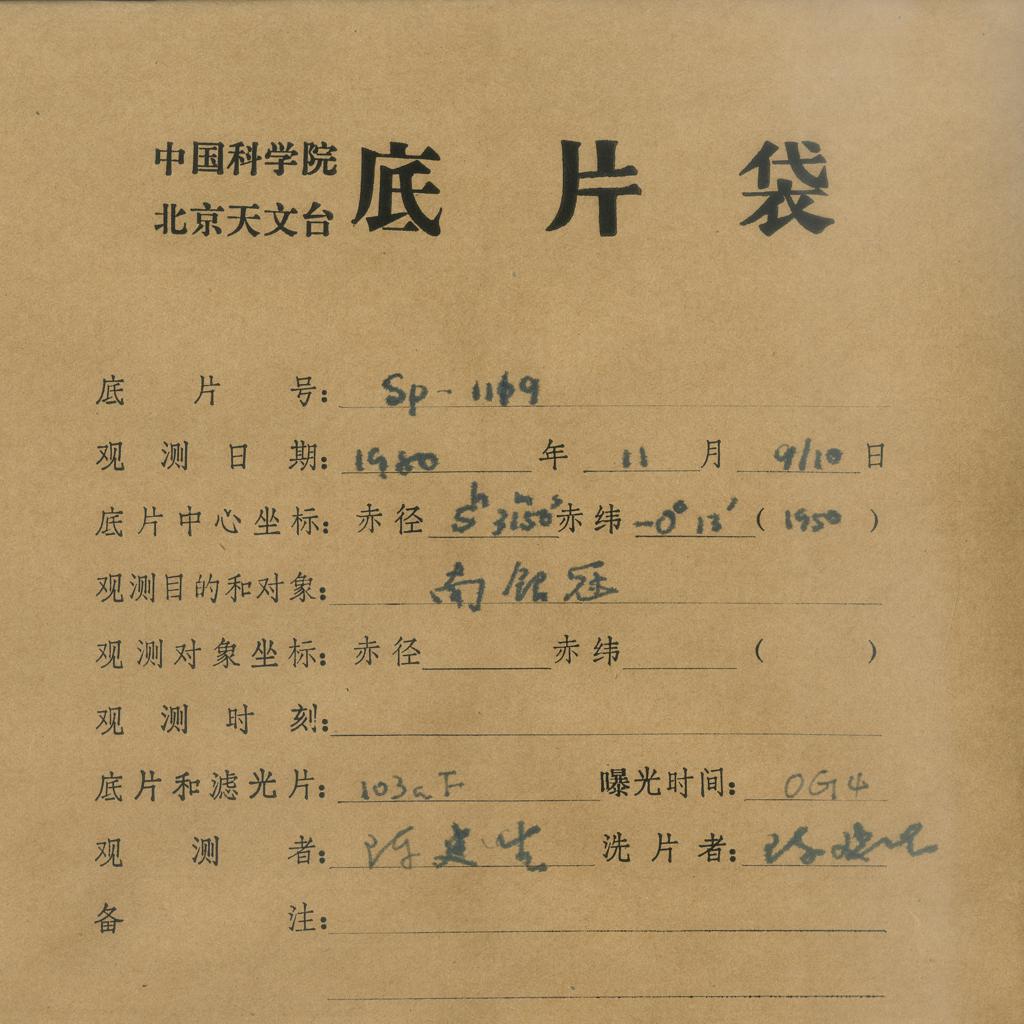 中国科学院
北京天文台 底片袋
底片号: Sp-1169
观测日期: 1980 年 11 月 9/10 日
底片中心坐标: 赤径 5h31m50s 赤纬 -0°13′ (1950)
观测目的和对象: 南银冠
观测对象坐标: 赤径 赤纬 ( )
观测时刻:
底片和滤光片: 103aF 曝光时间: OG4
观测者: 陈建生 洗片者: 陈建生
备注: